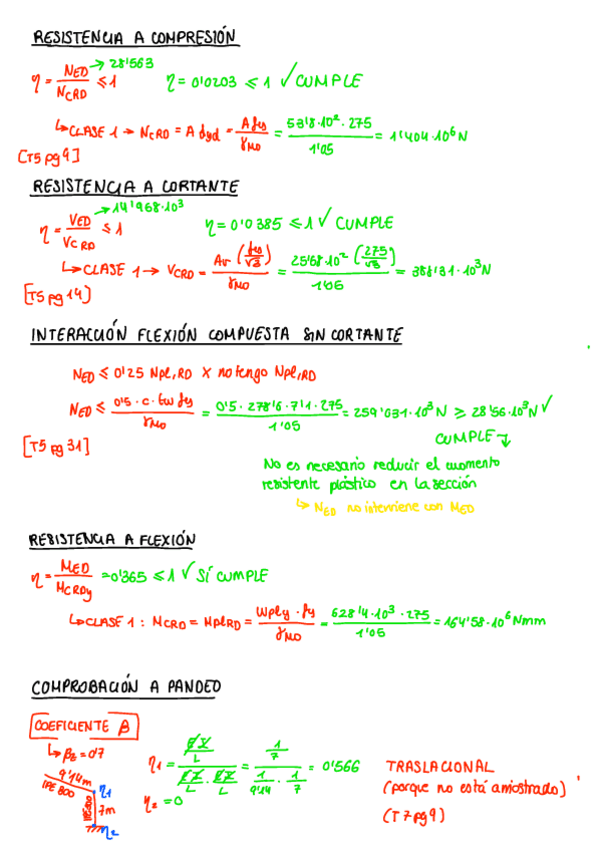 RESISTENCIA A COMPRESIÓN
η = NED/NCRD ≤ 1 → 28'563 η = 0'0203 ≤ 1 ✓ CUMPLE
↳ CLASE 1 → NCRD = A fyd = A fy/γM0 = 53'8·10²·275/1'05 = 1'404·10⁶ N
[T5 pg 9]
RESISTENCIA A CORTANTE
η = VED/VCRD ≤ 1 → 14'968·10³ η = 0'0385 ≤ 1 ✓ CUMPLE
↳ CLASE 1 → VCRD = Av (fy/√3)/γM0 = 25'68·10² (275/√3)/1'05 = 388'31·10³ N
[T5 pg 14]
INTERACCIÓN FLEXIÓN COMPUESTA SIN CORTANTE
NED ≤ 0'25 Npl,RD X no tengo Npl,RD
NED ≤ 0'5·c·tw fy/γM0 = 0'5·278'6·7'1·275/1'05 = 259'031·10³ N ≥ 28'56·10³ N ✓
CUMPLE
[T5 pg 31]
No es necesario reducir el momento
resistente plástico en la sección
↳ NED no interviene con MED
RESISTENCIA A FLEXIÓN
η = MED/MCRDy = 0'365 ≤ 1 ✓ SÍ CUMPLE
↳ CLASE 1 : MCRD = MplRD = Wply·fy/γM0 = 628'4·10³·275/1'05 = 164'58·10⁶ Nmm
COMPROBACIÓN A PANDEO
COEFICIENTE β
↳ β = 0'7
9'14m
IPE 300
7m
η1
η2
η1 = (1/7)/(1/9'14 · 1/7) = 0'566
η2 = 0
TRASLACIONAL
(porque no está arriostrado)
(T7 pg 9)